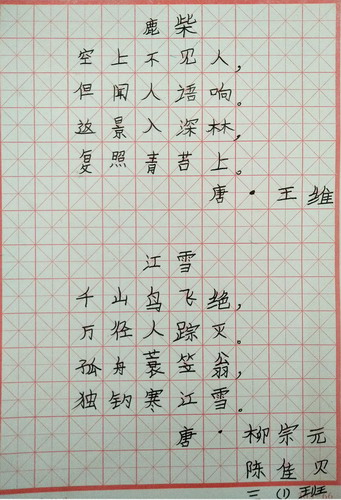 鹿柴
空上不见人，
但闻人语响。
这景入深林，
复照青苔上。
唐·王维
江雪
千山鸟飞绝，
万径人踪灭。
孤舟蓑笠翁，
独钓寒江雪。
唐·柳宗元
陈佳贝
三(1)班